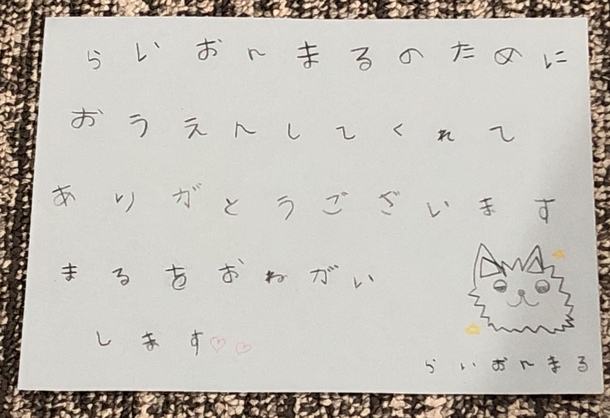 らいおんまるのために
おうえんしてくれて
ありがとうございます
まるをおねがい
します♡♡
らいおんまる